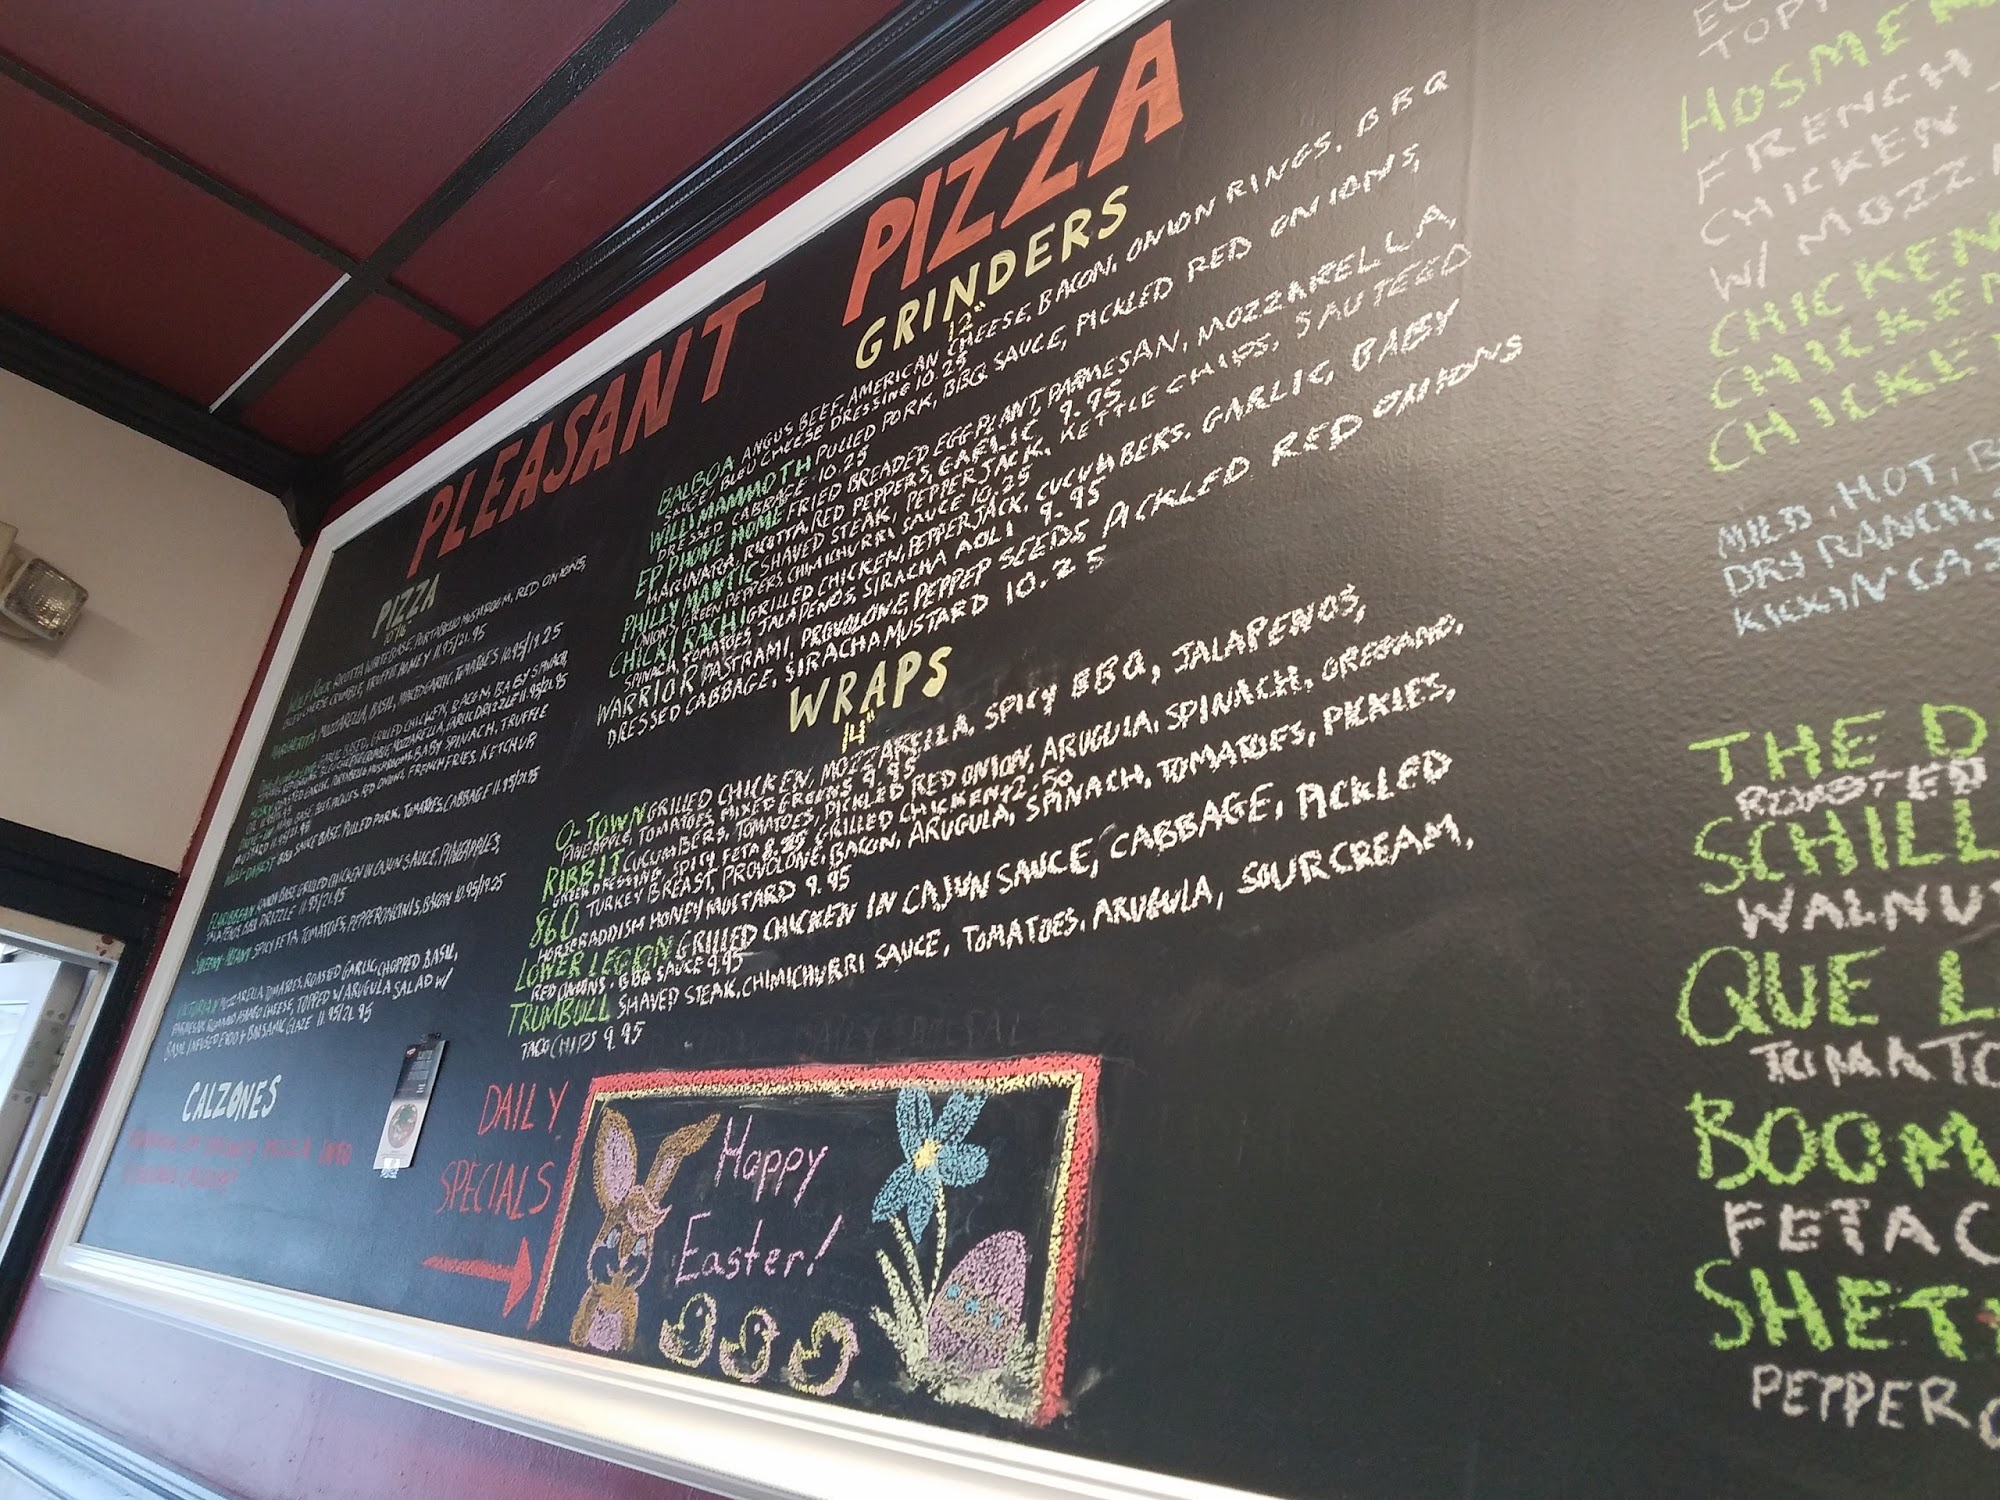 PLEASANT PIZZA
PIZZA
10"/16"
WOLF ROCK RICOTTA WHITE BASE, PORTABELLO MUSHROOM, RED ONIONS,
BLEU CHEESE CRUMBLE, TRUFFLE HONEY 11.95/21.95
MARGHERITA MOZZARELLA, BASIL, MINCED GARLIC, TOMATOES 10.95/19.25
GARLIC BASED, GRILLED CHICKEN, BACON, BABY SPINACH,
MOZZARELLA, GARLIC DRIZZLE 11.95/21.95
HUSKY ROASTED GARLIC, PORTABELLO MUSHROOMS, BABY SPINACH, TRUFFLE
OIL
BASE BEEF, PICKLES, RED ONIONS, FRENCH FRIES, KETCHUP,
MUSTARD 11.95/21.95
WILLI-DANGST BBQ SAUCE BASE, PULLED PORK, TOMATOES, CABBAGE 11.95/21.95
BASE, GRILLED CHICKEN IN CAJUN SAUCE, PINEAPPLES,
JALAPENOS BBQ DRIZZLE 11.95/21.95
SWEENY-MEANY SPICY FETA, TOMATOES, PEPPERONCINIS, BACON 10.95/19.25
VICTORIAN MOZZARELLA, TOMATOES, ROASTED GARLIC, CHOPPED BASIL,
PARMESAN ROMANO ASIAGO CHEESE, TOPPED W/ ARUGULA SALAD W/
BASIL INFUSED EVOO & BALSAMIC GLAZE 11.95/21.95
CALZONES
PIZZA INTO
GRINDERS
12"
BALBOA ANGUS BEEF, AMERICAN CHEESE, BACON, ONION RINGS, BBQ
SAUCE, BLEU CHEESE DRESSING 10.25
WILLI MAMMOTH PULLED PORK, BBQ SAUCE, PICKLED RED ONIONS,
DRESSED CABBAGE 10.25
EP PHONE HOME FRIED BREADED EGGPLANT, PARMESAN, MOZZARELLA,
MARINATOR, RICOTTA, RED PEPPERS, GARLIC 9.95
PHILLY MANTIC SHAVED STEAK, PEPPERJACK, KETTLE CHIPS, SAUTEED
ONIONS, GREEN PEPPERS, CHIMICHURRI SAUCE 10.25
CHICKI RACHI GRILLED CHICKEN, PEPPERJACK, CUCUMBERS, GARLIC, BABY
SPINACH, TOMATOES, JALAPENOS, SIRACHA AOLI 9.95
WARRIOR PASTRAMI, PROVOLONE, PEPPER SEEDS PICKLED RED ONIONS
DRESSED CABBAGE, SIRACHA MUSTARD 10.25
WRAPS
14"
O-TOWN GRILLED CHICKEN, MOZZARELLA, SPICY BBQ, JALAPENOS,
PINEAPPLE, TOMATOES, MIXED GREENS 9.95
RIBBIT CUCUMBERS, TOMATOES, PICKLED RED ONION, ARUGULA, SPINACH, OREGANO,
GREEK DRESSING, SPICY FETA 8.25 GRILLED CHICKEN +2.50
860 TURKEY BREAST, PROVOLONE, BACON, ARUGULA, SPINACH, TOMATOES, PICKLES,
HORSERADDISH HONEY MUSTARD 9.95
LOWER LEGION GRILLED CHICKEN IN CAJUN SAUCE, CABBAGE, PICKLED
RED ONIONS, BBQ SAUCE 9.95
TRUMBULL SHAVED STEAK, CHIMICHURRI SAUCE, TOMATOES, ARUGULA, SOUR CREAM,
TACO CHIPS 9.95
DAILY
SPECIALS
Happy
Easter!
TOPP
HOSMER
FRENCH
CHICKEN
W/ MOZZA
CHICKEN
CHICKEN
CHICKE
MILD, HOT, B
DRY RANCH,
KICKIN CAJ
THE D
ROASTED
SCHILL
WALNUT
QUE L
TOMATO
BOOM
FETA C
SHET
PEPPER